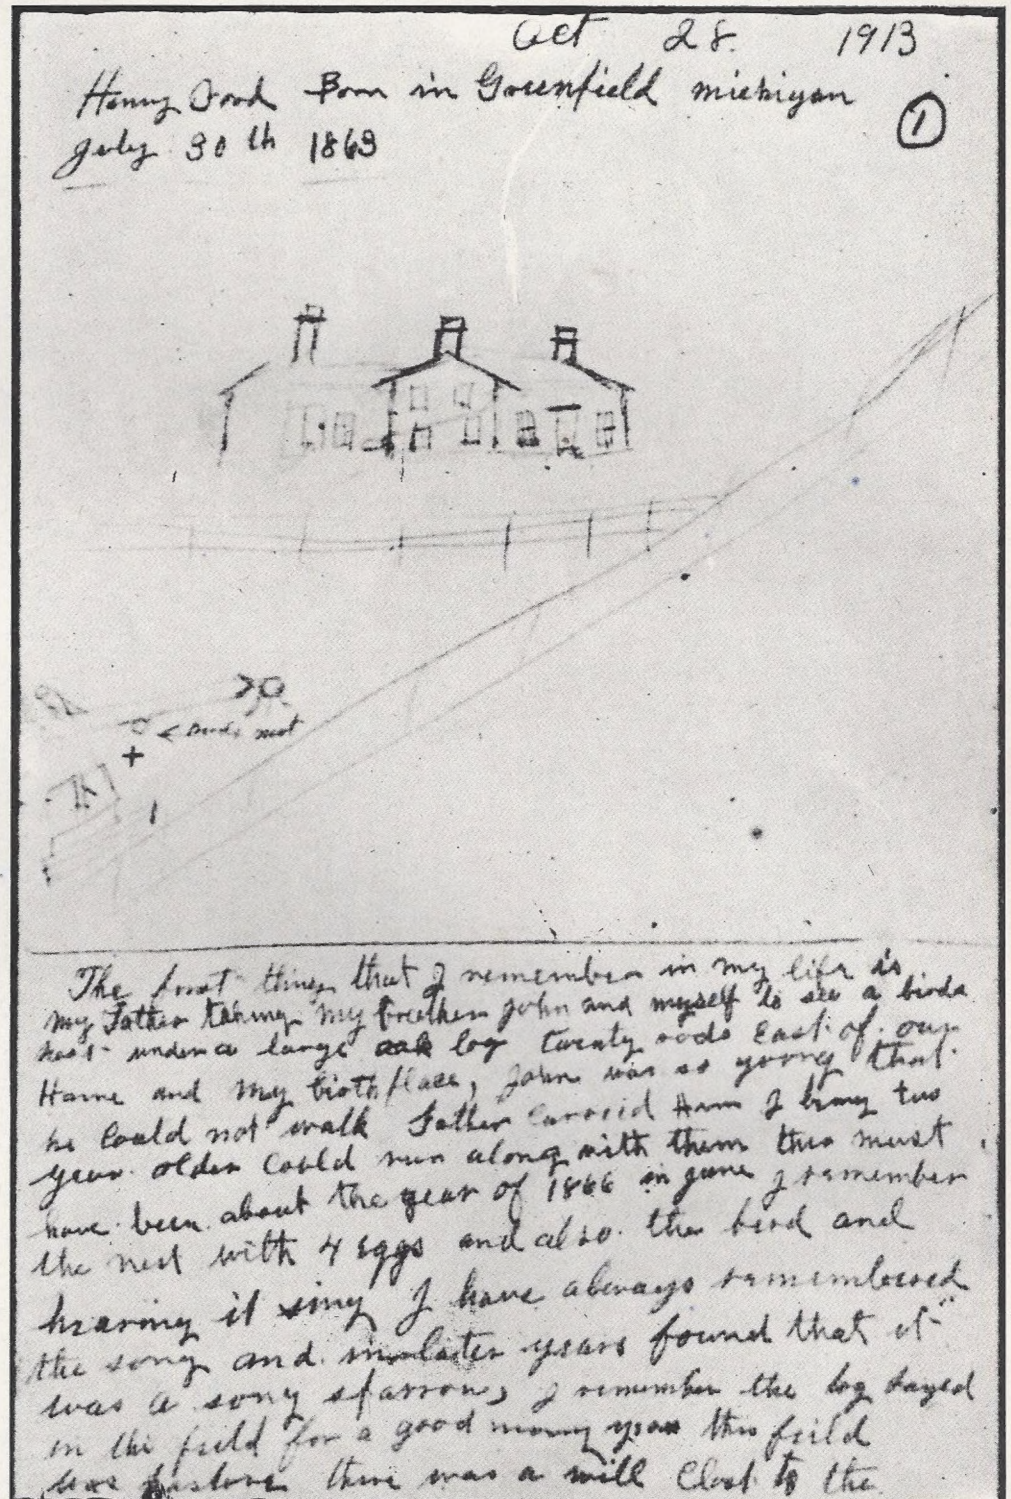 Oct 28. 1913
Henry Ford Born in Greenfield michigan
①
July 30th 1863
← Birds nest
The first thing that I remember in my life is
my Father taking my brother John and myself to see a birds
nest under a large oak log twenty rods East of our
Home and my birth place, John was so young that
he could not walk Father carried Him I being two
years older could run along with them this must
have been about the year of 1866 in june I remember
the nest with 4 eggs and also the bird and
hearing it sing I have always remembered
the song and in later years found that it
was a song sparrow, I remember the log layed
in the field for a good many years this feild
was pasture there was a well Close to the